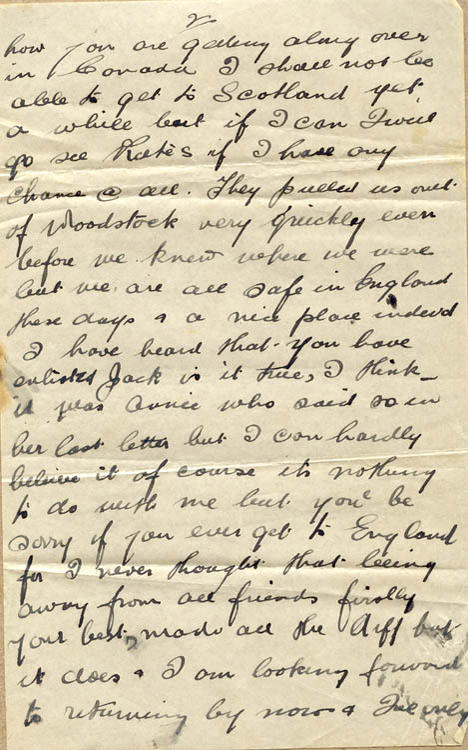 2
how you are getting along over
in Canada I shall not be
able to get to Scotland yet
a while but if I can I will
go see Kate's if I have any
chance @ all. They pulled us out
of Woodstock very quickly even
before we knew where we were
but we are all safe in England
these days & a nice place indeed
I have heard that you have
enlisted Jack is it true, I think
it was Annie who said so in
her last letter but I can hardly
believe it of course its nothing
to do with me but you'l be
sorry if you ever get to England
for I never thought that being
away from all friends firstly
your best, made all the diff but
it does & I am looking forward
to returning by now & I'le only